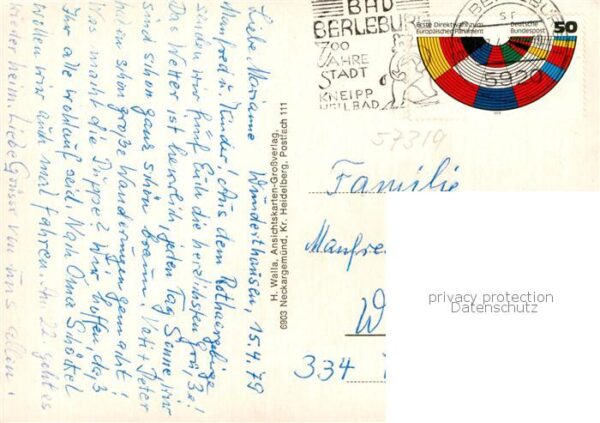 Wunderthausen, 15.4.79
Liebe Marianne
Manfred u. Kinder! Aus dem Rothaargebirge
senden wir fünf Euch die herzlichsten Grüße!
Das Wetter ist herrlich, jeden Tag Sonne, wir
sind schon ganz schön braun. Vati + Peter
haben schon große Wanderungen gemacht!
Was macht die Puppe? Wir hoffen, daß
Ihr alle wohlauf seid. Nach Oma
wollen wir auch mal fahren. Am 22. geht es
wieder heim. Liebe Grüße von uns allen!
H. Walla, Ansichtskarten-Großverlag,
6903 Neckargemünd, Kr. Heidelberg, Postfach 111
BAD
BERLEBURG
700
JAHRE
STADT
KNEIPP
HEILBAD
BERLEBURG
5920
Erste Direktwahlen zum
Europäischen Parlament
Deutsche
Bundespost
50
57319
Familie
Manfre
W
334
privacy protection
Datenschutz